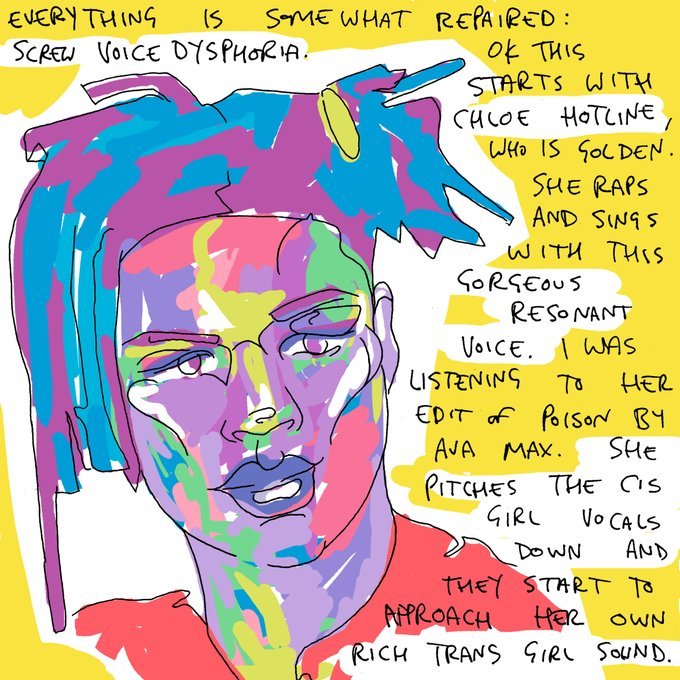 EVERYTHING IS SOMEWHAT REPAIRED:
SCREW VOICE DYSPHORIA.
OK THIS
STARTS WITH
CHLOE HOTLINE,
WHO IS GOLDEN.
SHE RAPS
AND SINGS
WITH THIS
GORGEOUS
RESONANT
VOICE. I WAS
LISTENING TO HER
EDIT OF POISON BY
AVA MAX. SHE
PITCHES THE CIS
GIRL VOCALS
DOWN AND
THEY START TO
APPROACH HER OWN
RICH TRANS GIRL SOUND.